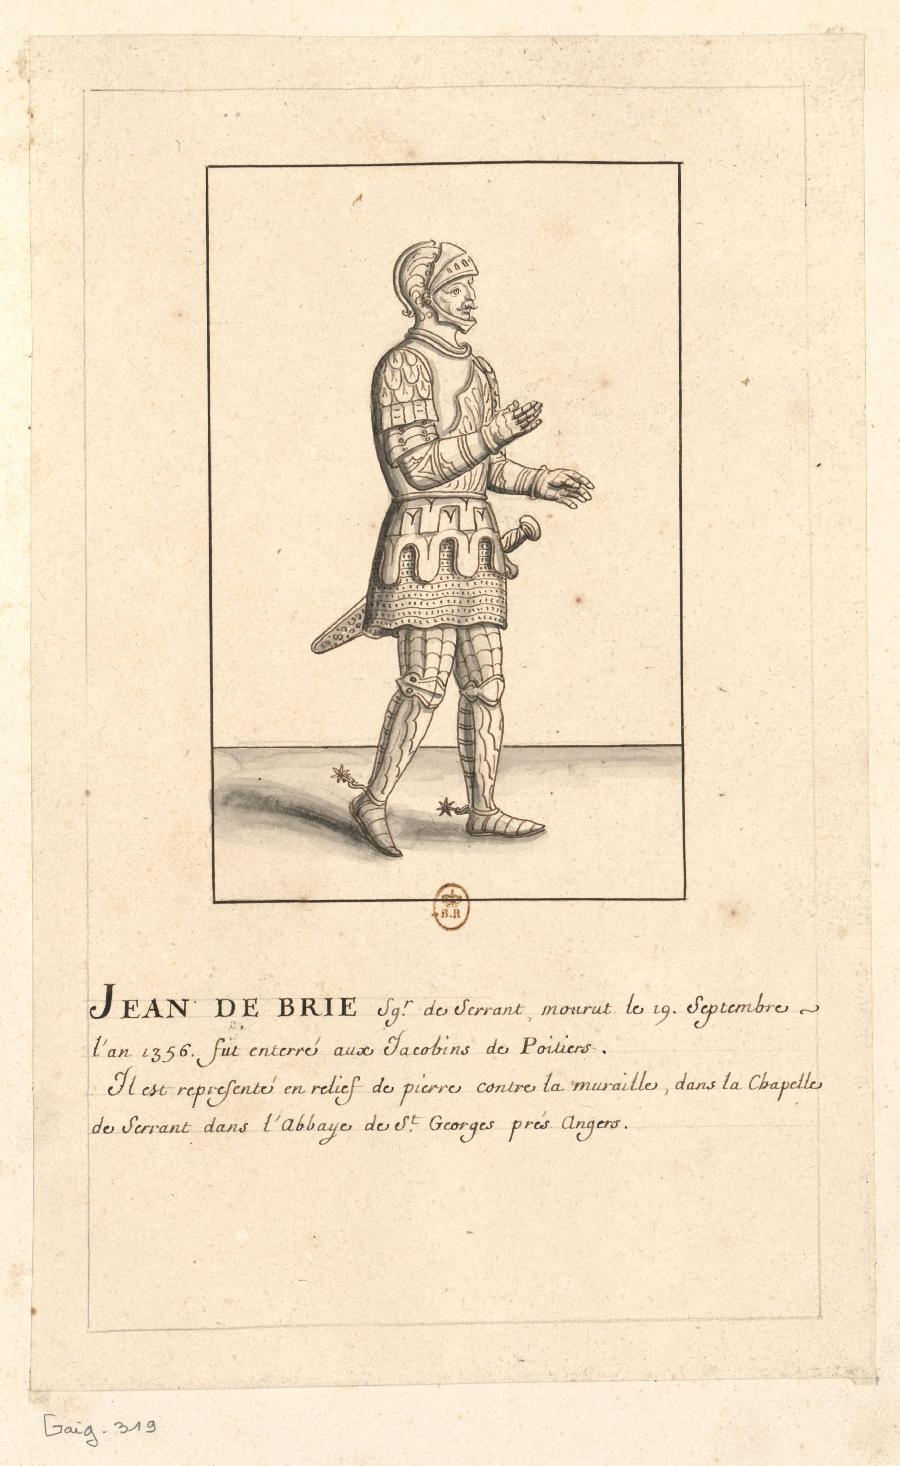 JEAN DE BRIE Sgr. de Serrant, mourut le 19. Septembre
l'an 1356. fût enterré aux Jacobins de Poitiers.
Il est representé en relief de pierre contre la muraille, dans la Chapelle
de Serrant dans l'Abbaye de St. Georges prés Angers.
B.R
Gaig. 319